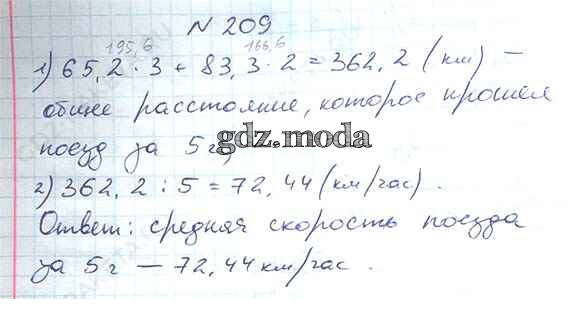 N 209
195,6 166,6
1) 65,2 · 3 + 83,3 · 2 = 362,2 (км) —
общее расстояние, которое прошёл
поезд за 5 г,
gdz.moda
2) 362,2 : 5 = 72,44 (км/час).
Ответ: средняя скорость поезда
за 5 г — 72,44 км/час.